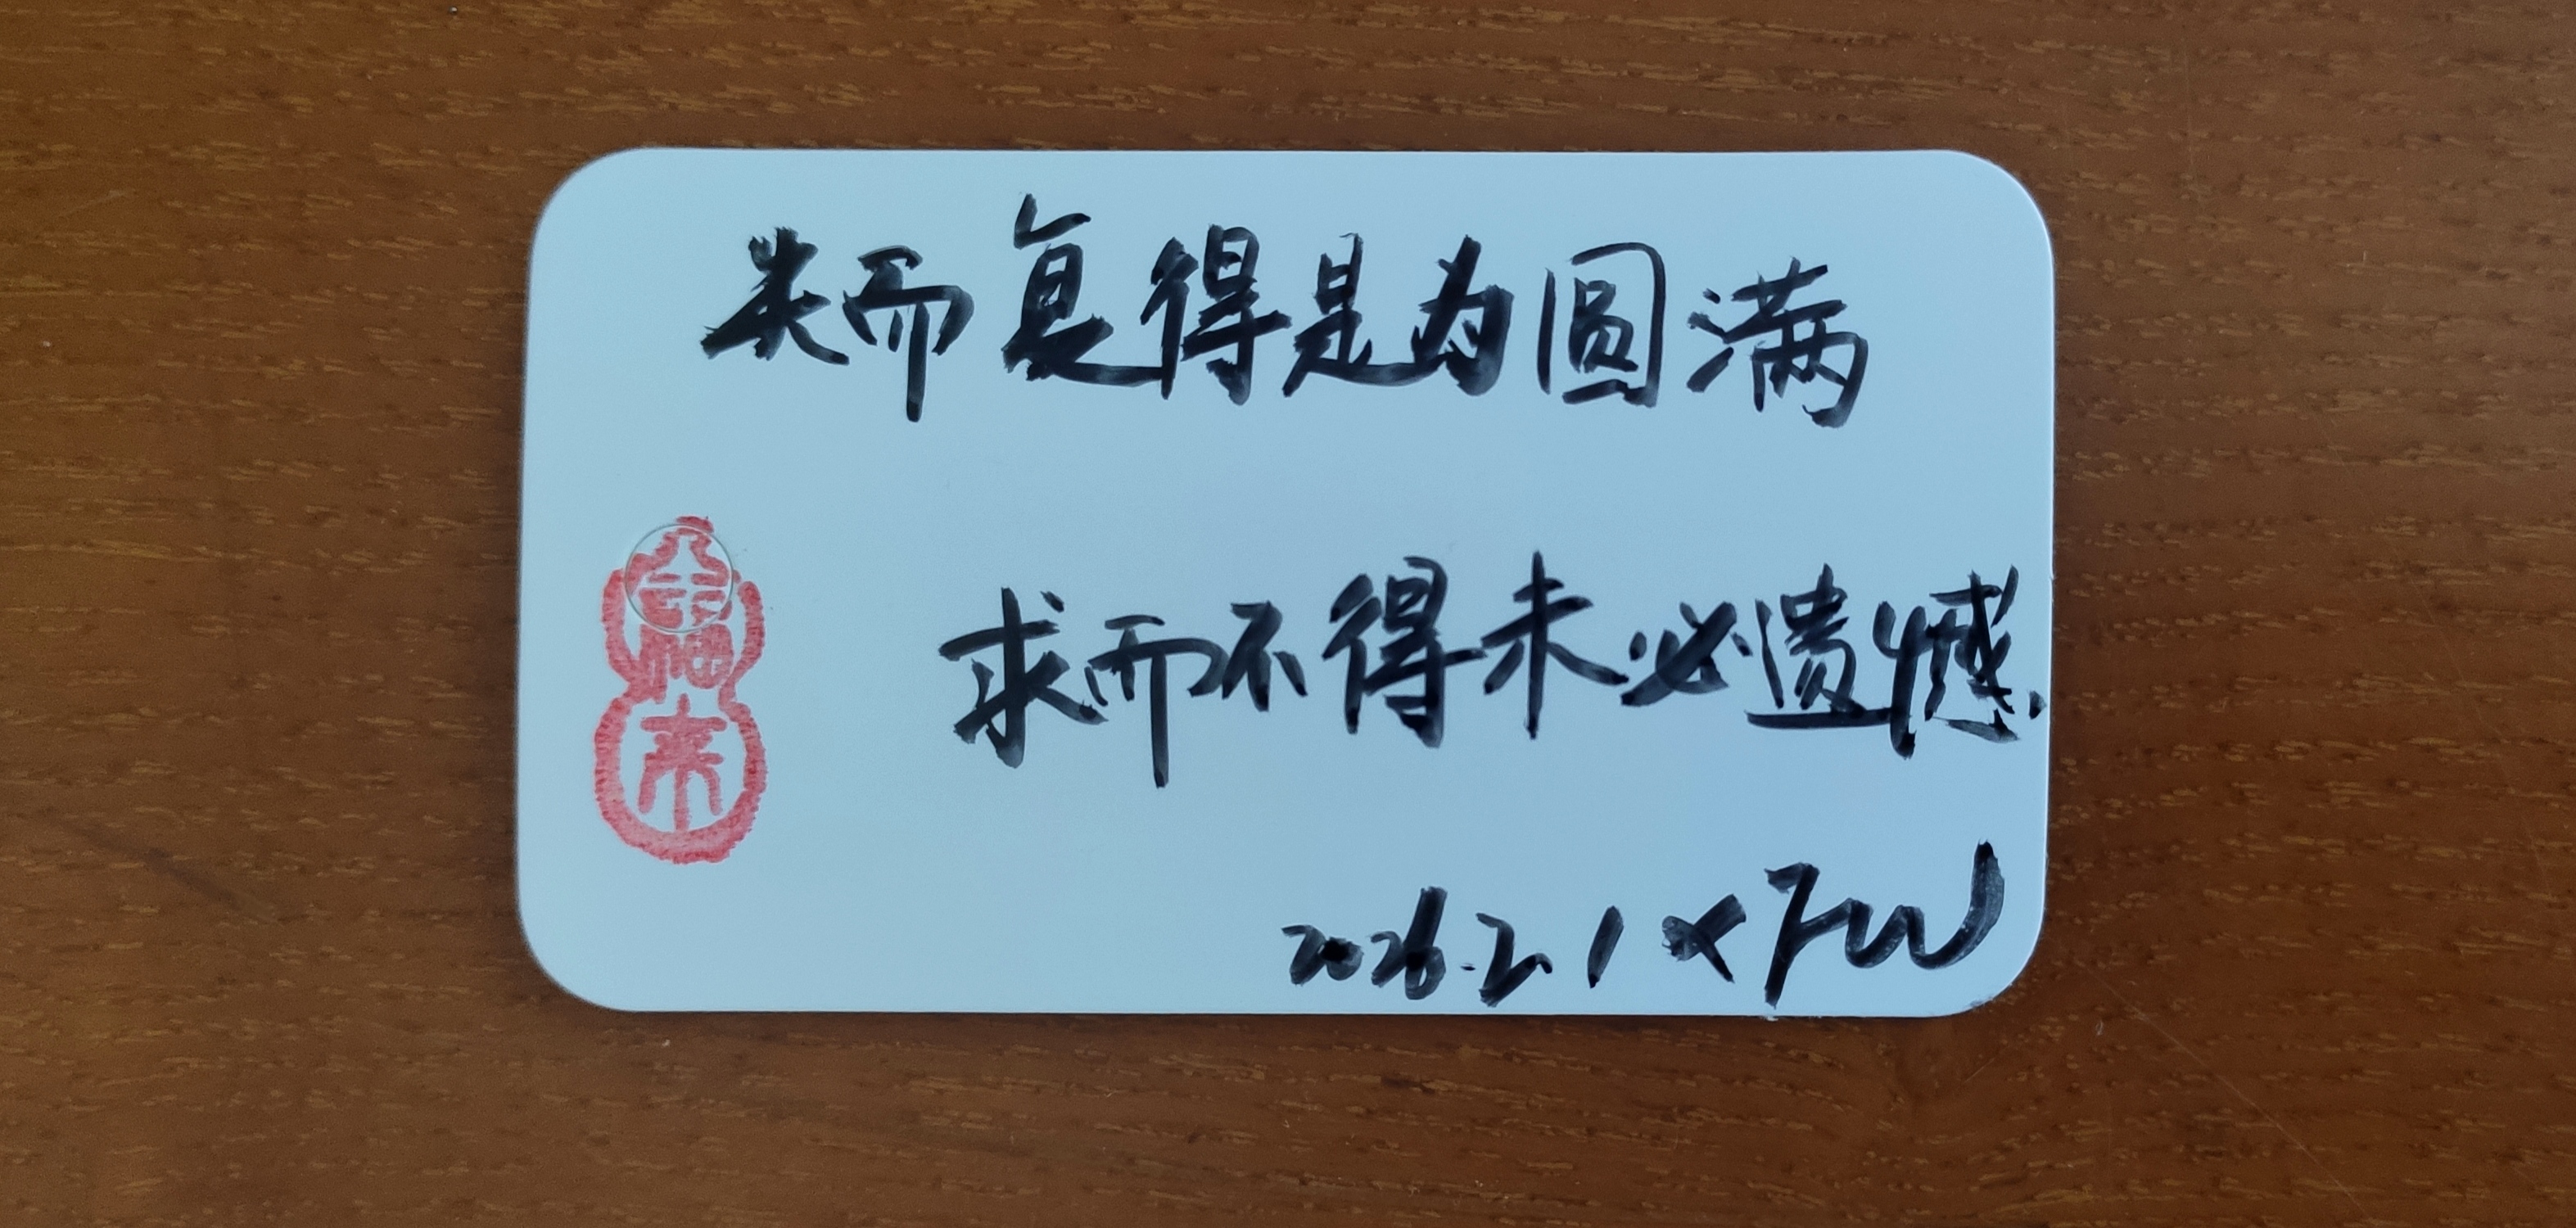 失而复得是为圆满
求而不得未必遗憾.
2026.2.1
福来